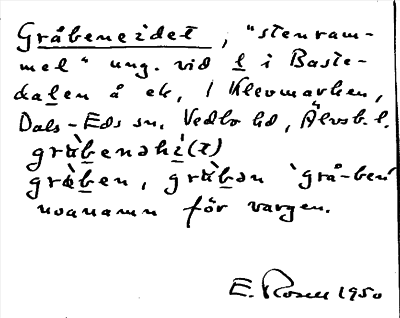 Gråbeneidet, "stenram-
mel" ung. vid l i Baste-
dalen å ek, i Klevmarken,
Dals-Eds sn, Vedbo hd, Älvsb. l.
gràbenəhì(t)
gràben, gràbən 'grå-ben'
noanamn för vargen.
E. Rosell 1950